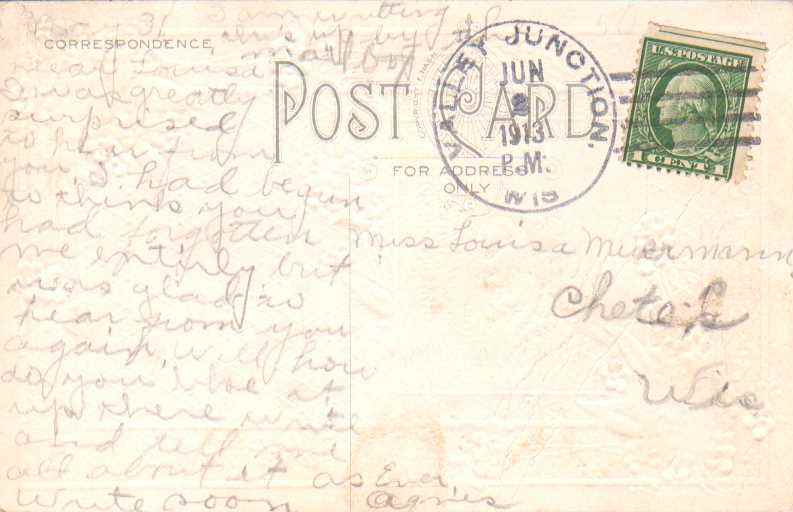 I am writing
this up by the
mail box
CORRESPONDENCE
Dear Louisa
I was greatly
surprised
to hear from
you, I had begun
to think you
had forgotten
me entirly but
was glad to
hear from you
again, well how
do you like it
up there write
and tell me
all about it as Ever
Write soon Agnes
POST CARD
FOR ADDRESS
ONLY
VALLEY JUNCTION,
JUN
2
1913
P.M.
WIS
U.S. POSTAGE
1 CENT 1
Miss Louisa Muermann
Chetek
Wis